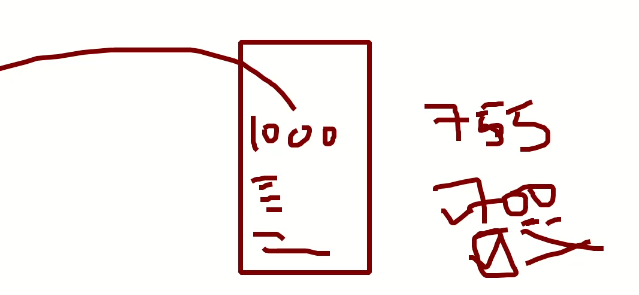 1000
755
700